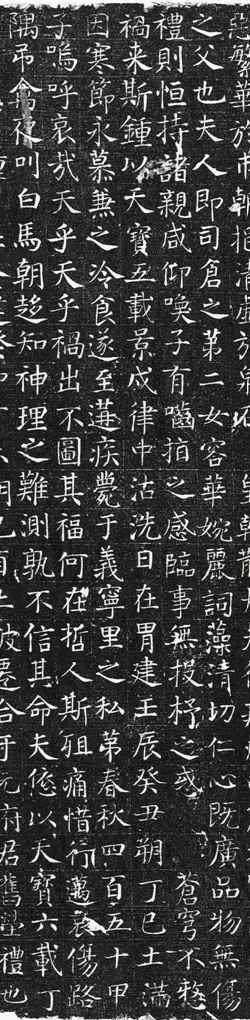 惡繁華於
之父也夫人即司倉之第二女容華婉麗詞藻清切仁心既廣品物無傷
禮則恒持諸親咸仰喚子有嚙指之感臨事無投杼之惑蒼穹不憖
禍来斯鍾以天寶五載景戌律中沽洗日在胃建壬辰癸丑朔丁巳土滿
因寒節永慕兼之冷食遂至遘疾薨于義寧里之私第春秋四百五十甲
子嗚呼哀㢤天乎天乎禍出不圖其福何在哲人斯殂痛惜行邁哀傷路
隅吊禽夜叫白馬朝趍知神理之難測孰不信其命夫偬以天寶六載丁
遷合府君舊塋禮也